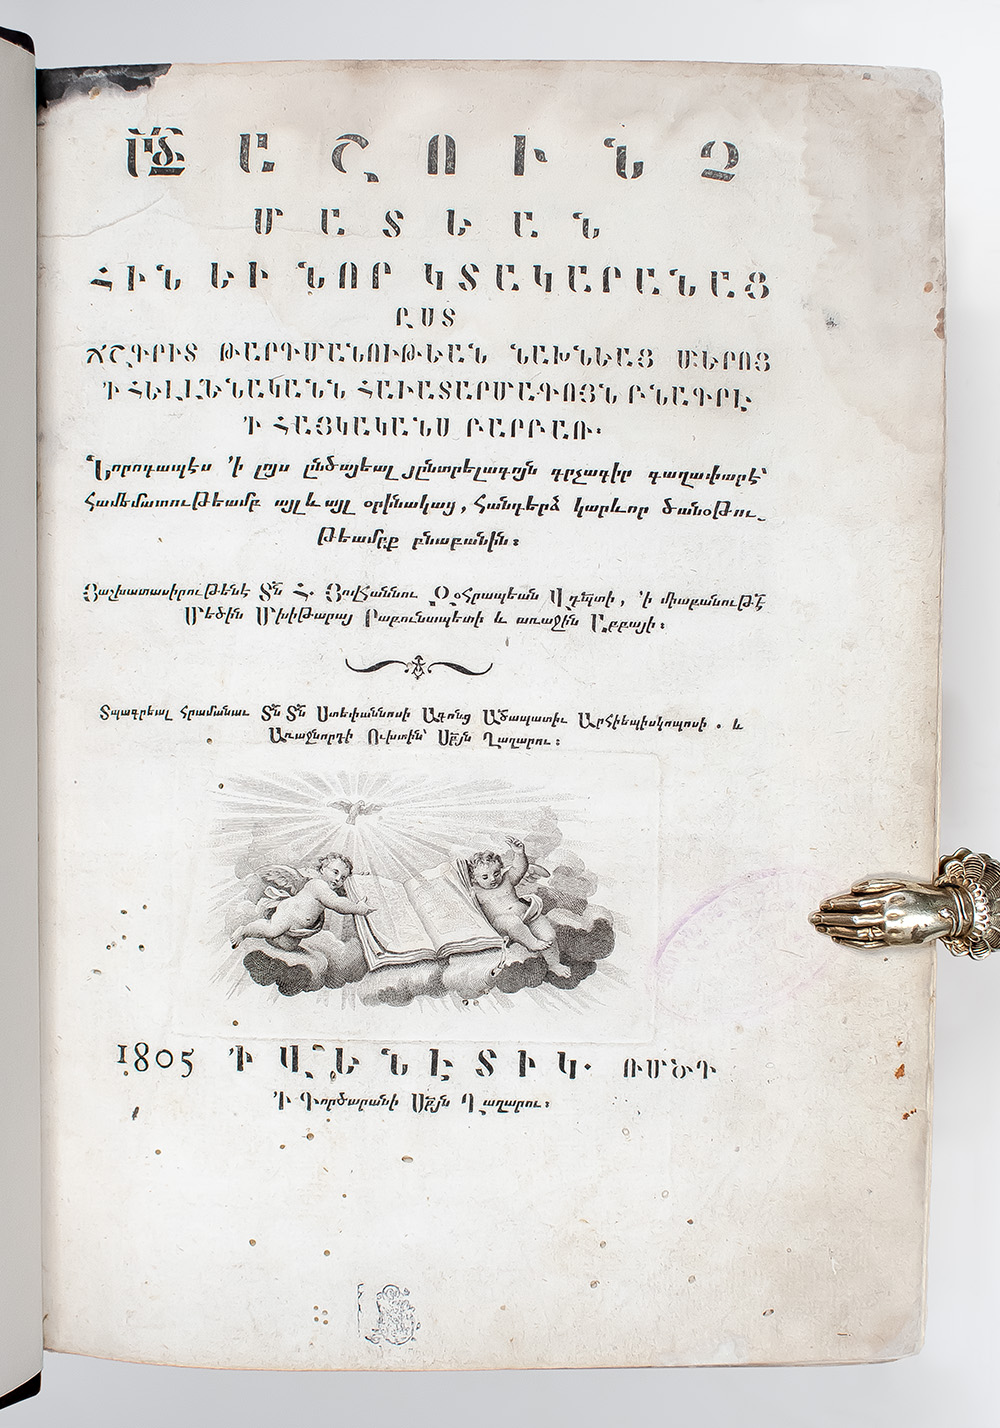 ԱՍՏՈՒԱԾԱՇՈՒՆՉ
ՄԱՏԵԱՆ
ՀԻՆ ԵՒ ՆՈՐ ԿՏԱԿԱՐԱՆԱՑ
ԸՍՏ
ՃՇԳՐԻՏ ԹԱՐԳՄԱՆՈՒԹԵԱՆ ՆԱԽՆԵԱՑ ՄԵՐՈՑ
՚Ի ՀԵԼԼԵՆԱԿԱՆՆ ՀԱՒԱՏԱՐՄԱԳՈՅՆ ԲՆԱԳՐԷ
՚Ի ՀԱՅԿԱԿԱՆՍ ԲԱՐԲԱՌ.
Նորոգապէս ՚ի լոյս ընծայեալ յընտրելագոյն գրչագիր գաղափարէ՝
Համեմատութեամբ այլևայլ օրինակաց, Հանդերձ կարևոր ծանօթու֊
թեամբք բնաբանին։
Յաշխատասիրութենէ Տն Հ. Յովհաննու Զօհրապեան Վրդպտի, ՚ի միաբանութէ
Մեծին Մխիթարայ Րաբունապետի և առաջին Աբբայի։
Տպագրեալ հրամանաւ Տն Տն Ստեփաննոսի Ագոնց Ածապատիւ Արհիեպիսկոպոսի. և
Առաջնորդի Ուխտին՝ Սբյն Ղազարու։
1805 ՚Ի ՎԵՆԷՏԻԿ. ՌՄԾԴ
՚Ի Գործարանի Սբյն Ղազարու։